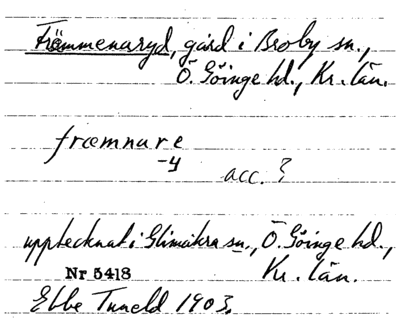 Främmenaryd, gård i Broby sn.,
Ö. Göinge hd., Kr. län.
fræmnare
-y
acc. ?
upptecknat i Glimåkra sn., Ö. Göinge hd.,
Nr 5418 Kr. län.
Ebbe Tuneld 1903.